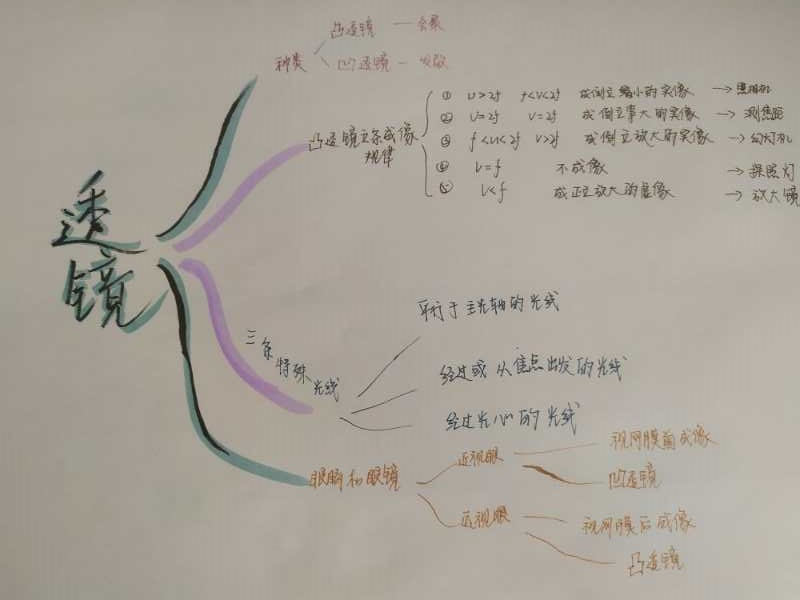 透
镜
种类
凸透镜 — 会聚
凹透镜 — 发散
凸透镜成像
规律
① u>2f f<v<2f 成倒立缩小的实像 → 照相机
② u=2f v=2f 成倒立等大的实像 → 测焦距
③ f<u<2f v>2f 成倒立放大的实像 → 幻灯机
④ u=f 不成像 → 探照灯
⑤ u<f 成正立放大的虚像 → 放大镜
三条特殊光线
平行于主光轴的光线
经过或从焦点出发的光线
经过光心的光线
眼睛和眼镜
近视眼
视网膜前成像
凹透镜
远视眼
视网膜后成像
凸透镜